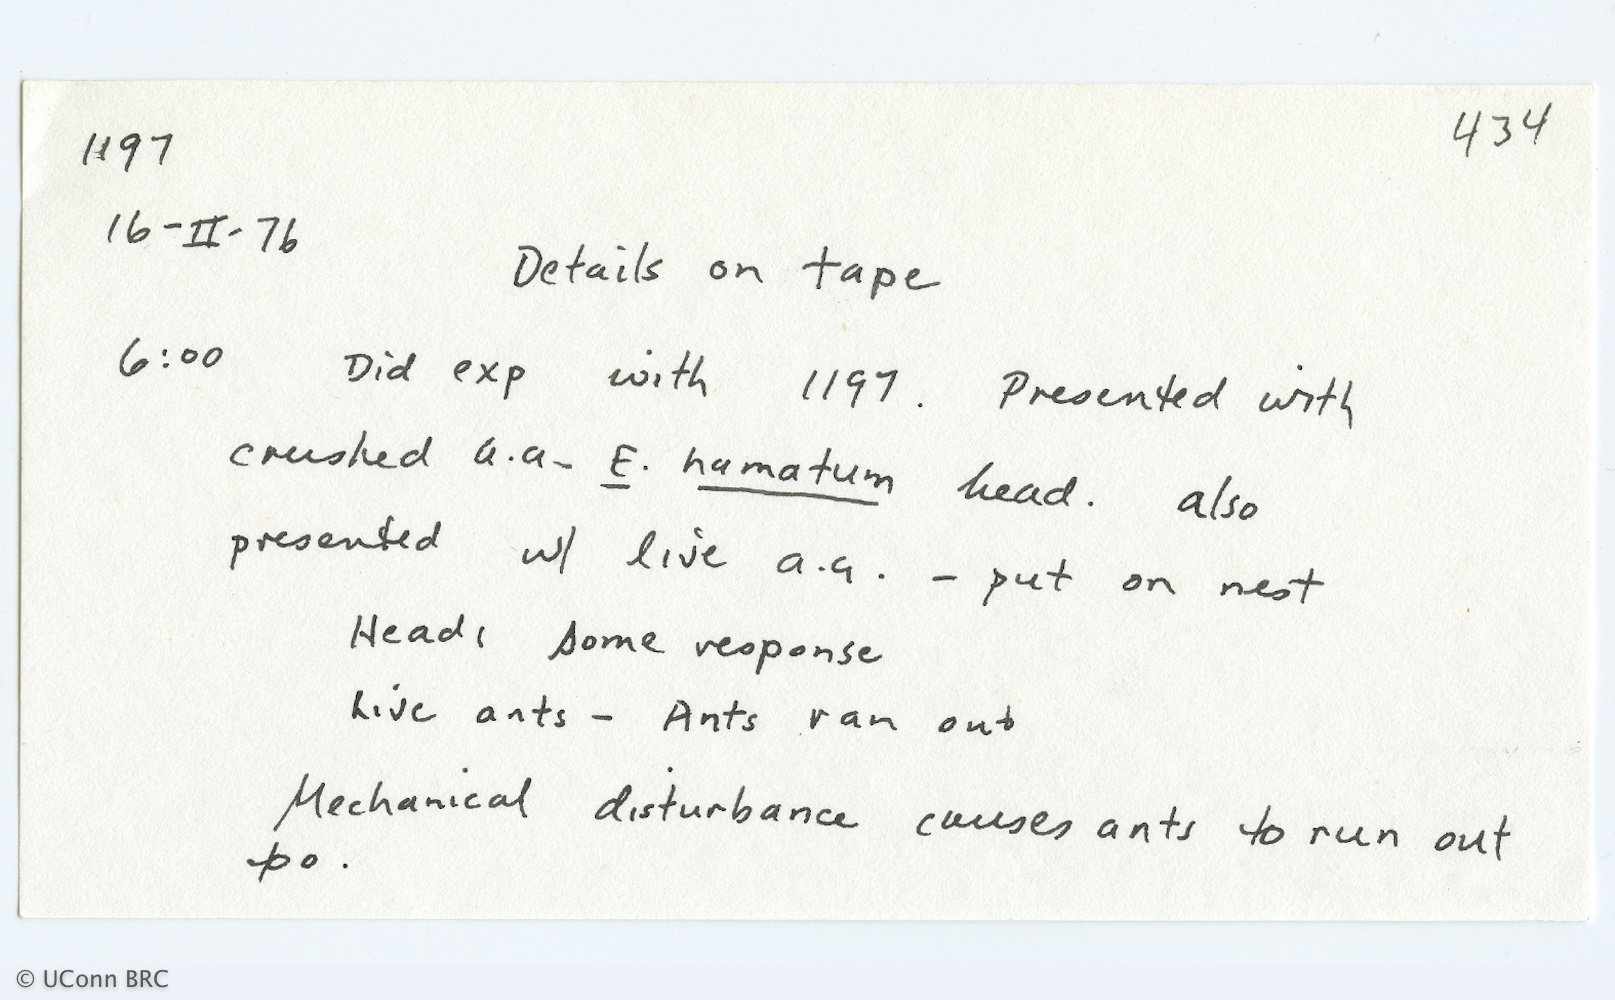 1197
434
16-II-76
Details on tape
6:00 Did exp with 1197. Presented with
crushed a.a- E. hamatum head. also
presented w/ live a.a. - put on nest
Head: some response
Live ants - Ants ran out
Mechanical disturbance causes ants to run out
po.
© UConn BRC